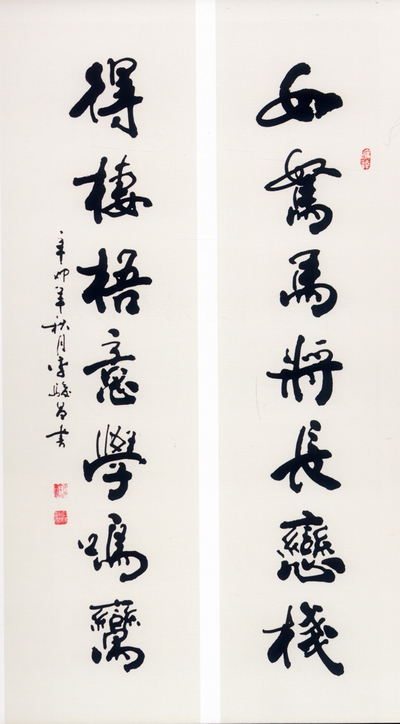 如駑馬將長戀棧
得棲梧意學鳴鸞
辛卯年秋月李駿書